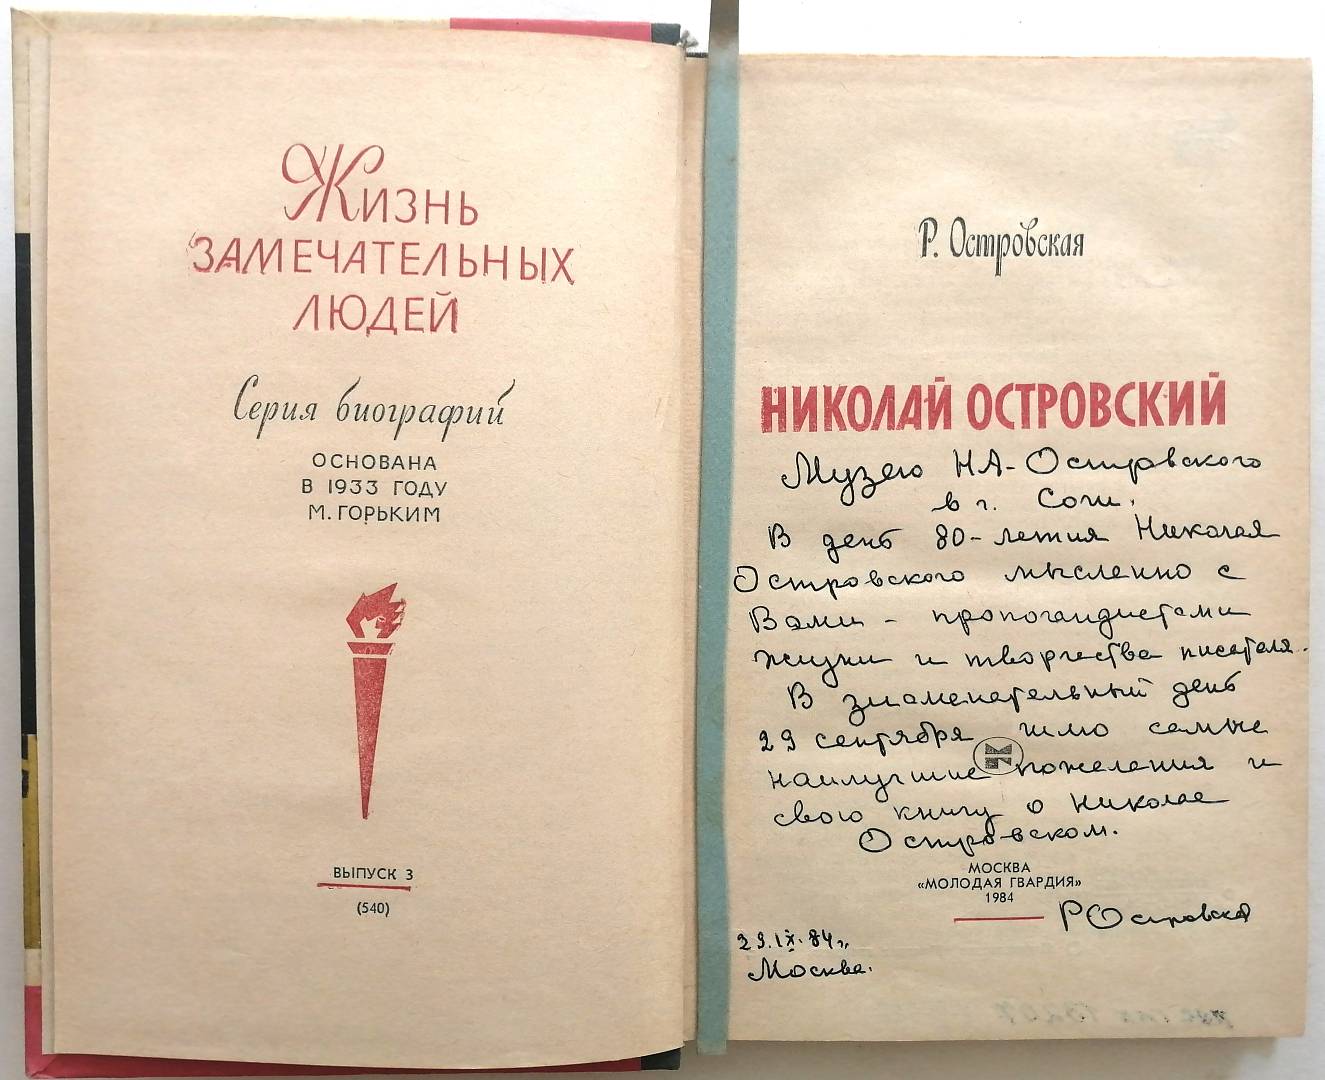 Жизнь
замечательных
людей
Серия биографий
ОСНОВАНА
В 1933 ГОДУ
М. ГОРЬКИМ
ВЫПУСК 3
(540)
Р. Островская
НИКОЛАЙ ОСТРОВСКИЙ
Музею Н.А. Островского
в г. Сочи.
В день 80-летия Николая
Островского мысленно с
Вами - пропогандистами
жизни и творчества писателя.
В знаменательный день
29 сентября шлю самые
наилучшие пожелания и
свою книгу о Николае
Островском.
МОСКВА
«МОЛОДАЯ ГВАРДИЯ»
1984
РОстровская
29.IX.84 г.
Москва.